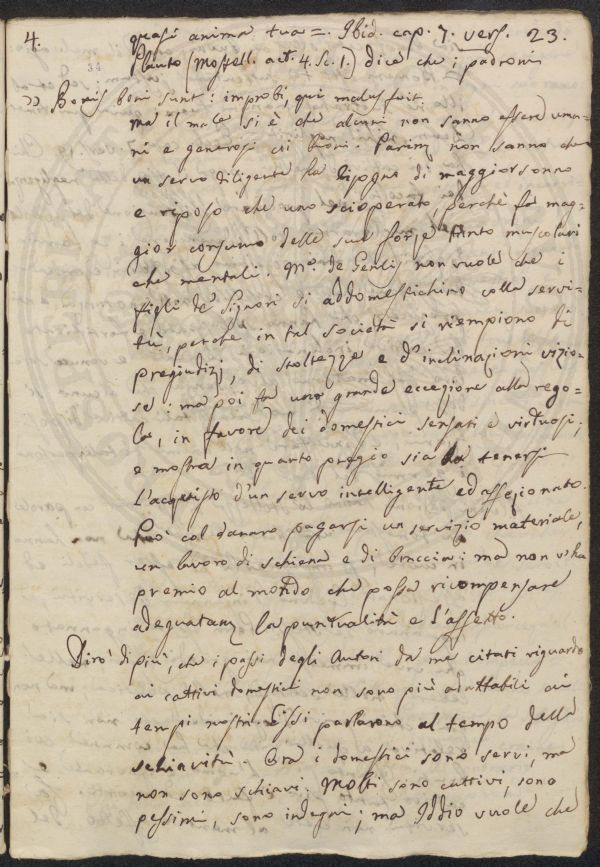 4.
quasi anima tua =. Ibid. cap. 7. vers. 23.
34
Plauto (Mostell. act. 4. Sc. 1.) dice che i padroni
» Bonis boni sunt: improbi, qui malus fuit.
ma il male si è che alcuni non sanno essere uma=
ni e generosi coi buoni. non sanno che
un servo diligente ha bisogno di maggior sonno
e riposo che uno scioperato, perchè fa mag=
gior consumo delle sue forze tanto muscolari
che mentali. M.ª de Genlis non vuole che i
figli de' Signori si addomestichino colla servi=
tù, perchè in tal società si riempiono di
pregiudizj, di stoltezze e d'inclinazioni vizio=
se: ma poi fa una grande eccezione alla rego=
la, in favore dei domestici sensati e virtuosi;
e mostra in quanto pregio sia da tenersi
l'acquisto d'un servo intelligente ed affezionato.
Può col danaro pagarsi un servizio materiale,
un lavoro di schiena e di braccia: ma non v'ha
premio al mondo che possa ricompensare
adeguatam. la puntualità e l'affetto.
Dirò di più, che i passi degli Autori da me citati riguardo
ai cattivi domestici non sono più adattabili ai
tempi nostri. Essi parlarono al tempo della
schiavitù. Ora i domestici sono servi, ma
non sono schiavi. Molti sono cattivi, sono
pessimi, sono indegni; ma Iddio vuole che